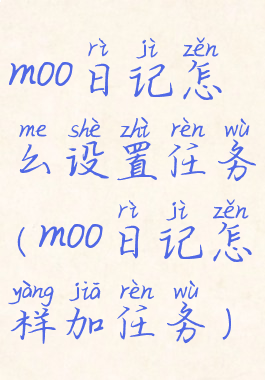 rì jì zěn
moo日记怎
me shè zhì rèn wù
么设置任务
rì jì zěn
(moo日记怎
yàng jiā rèn wù
样加任务)